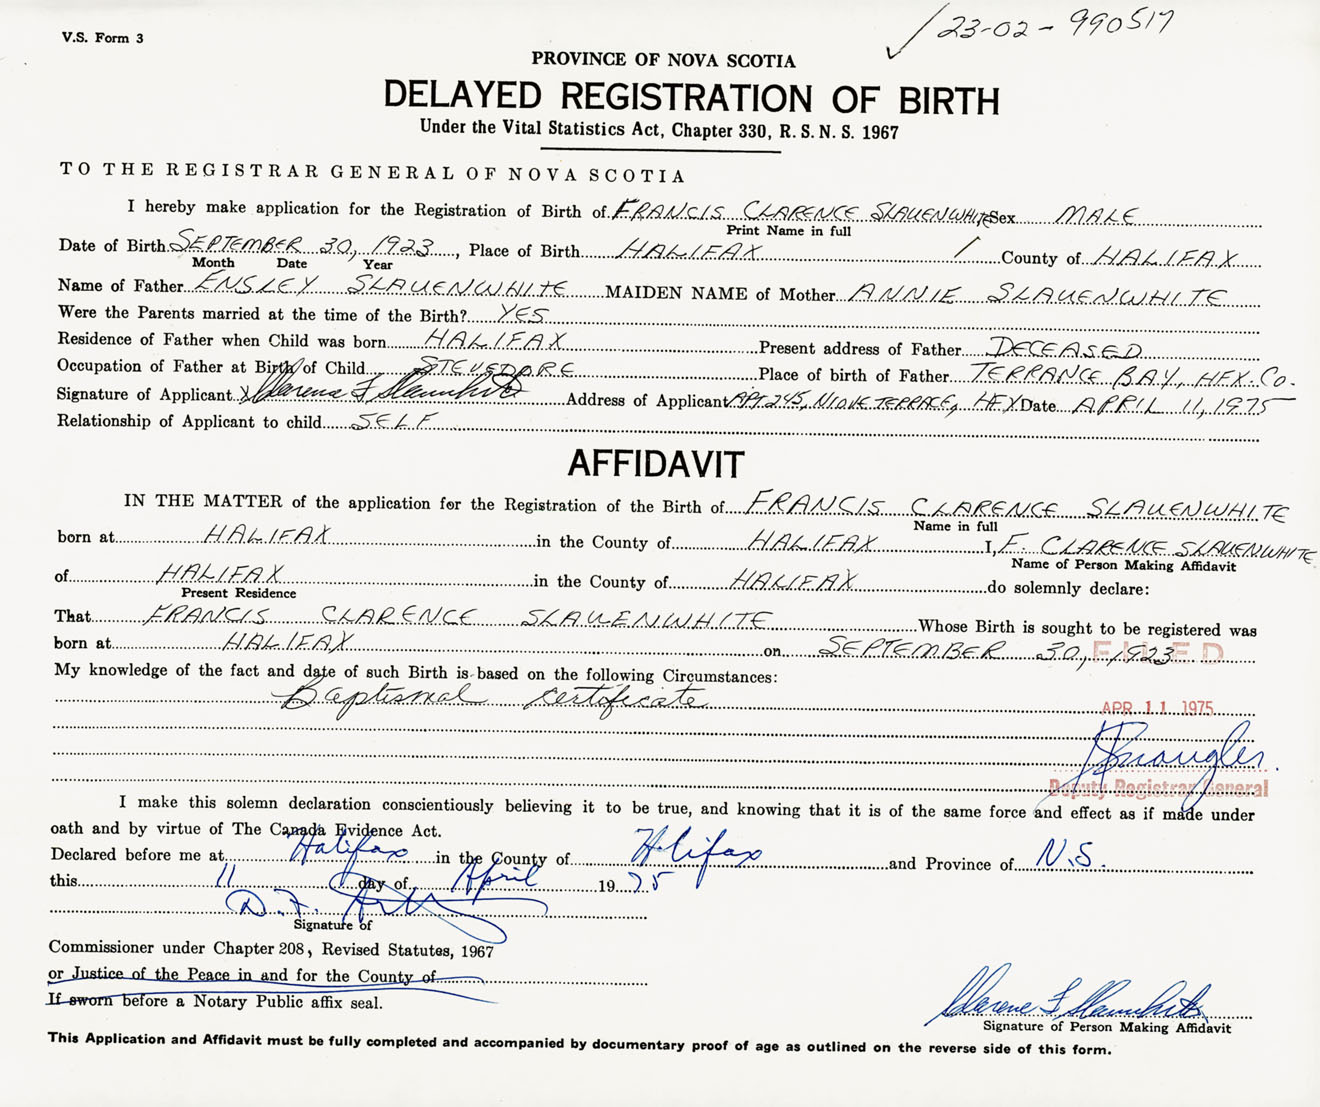 V.S. Form 3
23-02-990517
PROVINCE OF NOVA SCOTIA
DELAYED REGISTRATION OF BIRTH
Under the Vital Statistics Act, Chapter 330, R. S. N. S. 1967
TO THE REGISTRAR GENERAL OF NOVA SCOTIA
I hereby make application for the Registration of Birth of FRANCIS CLARENCE SLAUENWHITE Sex MALE
Print Name in full
Date of Birth SEPTEMBER 30, 1923, Place of Birth HALIFAX / County of HALIFAX
Month Date Year
Name of Father ENSLEY SLAUENWHITE MAIDEN NAME of Mother ANNIE SLAUENWHITE
Were the Parents married at the time of the Birth? YES
Residence of Father when Child was born HALIFAX Present address of Father DECEASED
Occupation of Father at Birth of Child STEVEDORE Place of birth of Father TERRANCE BAY, HFX. Co.
Signature of Applicant X Clarence F Slauenwhite Address of Applicant APT 245, NIOVE TERRACE, HFX Date APRIL 11, 1975
Relationship of Applicant to child SELF
AFFIDAVIT
IN THE MATTER of the application for the Registration of the Birth of FRANCIS CLARENCE SLAUENWHITE
Name in full
born at HALIFAX in the County of HALIFAX I, F. CLARENCE SLAUENWHITE
Name of Person Making Affidavit
of HALIFAX in the County of HALIFAX do solemnly declare:
Present Residence
That FRANCIS CLARENCE SLAUENWHITE Whose Birth is sought to be registered was
born at HALIFAX on SEPTEMBER 30, 1923
FILED
My knowledge of the fact and date of such Birth is based on the following Circumstances:
Baptismal Certificate
APR 11 1975
Deputy Registrar General
I make this solemn declaration conscientiously believing it to be true, and knowing that it is of the same force and effect as if made under
oath and by virtue of The Canada Evidence Act.
Declared before me at Halifax in the County of Halifax and Province of N.S.
this 11 day of April 1975
D. F.
Signature of
Commissioner under Chapter 208, Revised Statutes, 1967
or Justice of the Peace in and for the County of
If sworn before a Notary Public affix seal.
Clarence F Slauenwhite
Signature of Person Making Affidavit
This Application and Affidavit must be fully completed and accompanied by documentary proof of age as outlined on the reverse side of this form.